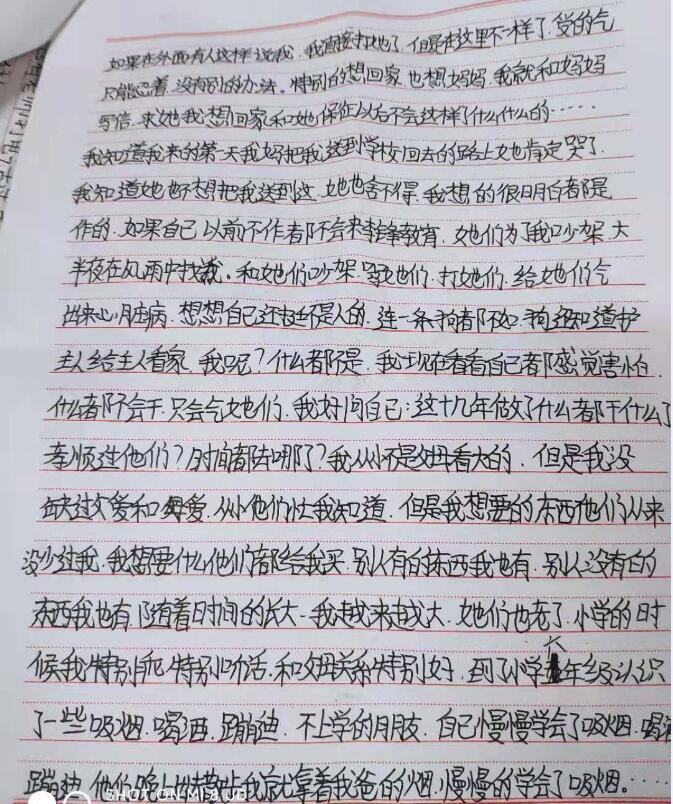 如果在外面有人这样说我.我直接打他了.但是在这里不一样了.受的气
只能忍着.没有别的办法.特别的想回家.也想妈妈.我就和妈妈
写信.求她我想回家和她保证以后不会这样了什么什么的……
我知道我来的第一天我妈把我送到学校.回去的路上她肯定哭了.
我知道她也不想把我送到这.她也舍不得.我想的很明白都是
作的.如果自己以前不作都不会来李锋教育.她们为了我吵架.大
半夜在风雨中找我.和她们吵架.骂她们.打她们.给她们气
出来心脏病.想想自己还是人的.连一条狗都不如.狗还知道护
主人给主人看家.我呢?什么都不是.我现在看看自己都感觉害怕.
什么都不会干.只会气她们.我好问自己:这十几年做了什么都干什么了
孝顺过他们?时间都去哪了?我从小不是父母看大的.但是我没
缺过父爱和母爱.从小他们忙我知道.但是我想要的东西他们从来
没少过我.我想要什么他们都给我买.别人有的东西我也有.别人没有的
东西我也有.随着时间的长大.我越来越大.她们也老了.小学的时
候我特别乖.特别听话.和父母关系特别好.到了小学六年级认识
了一些吸烟.喝酒.蹦迪.不上学的朋友.自己慢慢学会了吸烟.喝酒
蹦迪.他们晚上我就拿着我爸的烟.慢慢的学会了吸烟.……
SHOT ON MI 8 UD